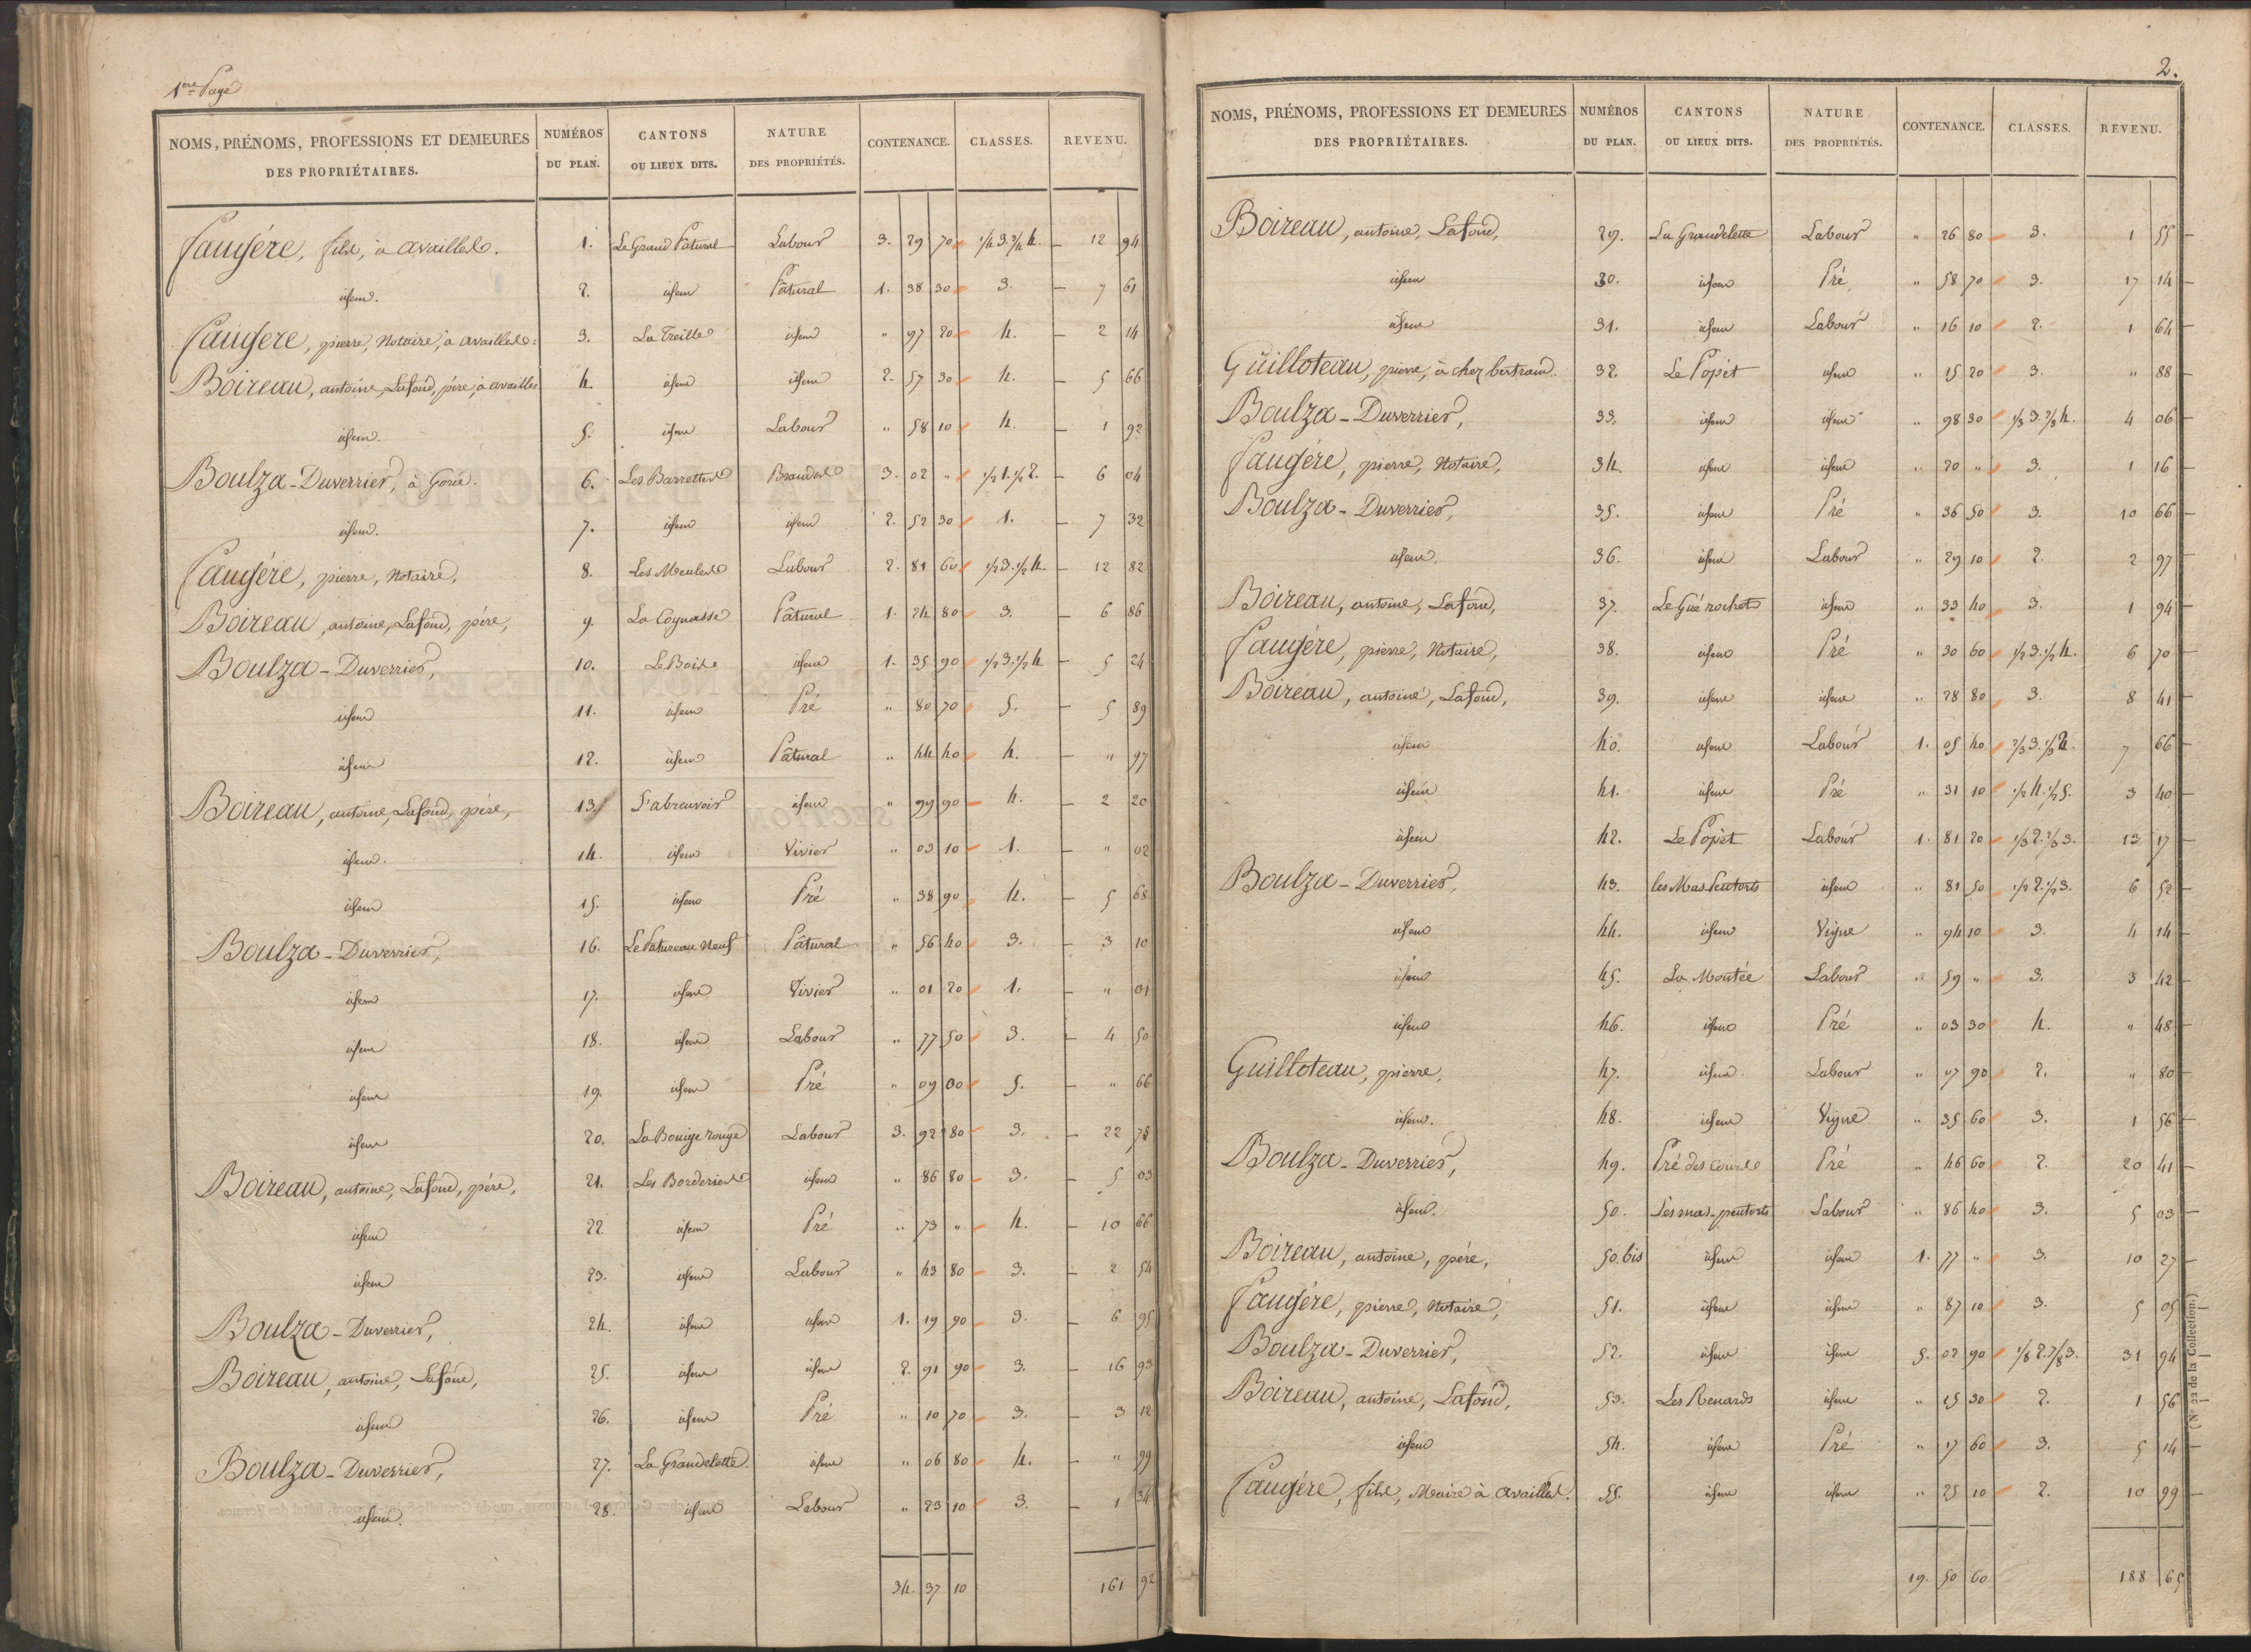 1ere Page
NOMS, PRÉNOMS, PROFESSIONS ET DEMEURES DES PROPRIÉTAIRES. NUMÉROS DU PLAN. CANTONS OU LIEUX DITS. NATURE DES PROPRIÉTÉS. CONTENANCE. CLASSES. REVENU.
Faugére, fils, à availles. 1. Le Grand Pâtural Labour 3. 29 70 1/4 3. 3/4 4. 12 94
idem. 2. idem Pâtural 1. 38 30 3. 7 61
Faugere, pierre, Notaire, à availles. 3. La Treille idem " 97 20 4. 2 14
Boireau, antoine, Lafond, père, à availles 4. idem idem 2. 57 30 4. 5 66
idem. 5. idem Labour " 58 10 4. 1 92
Boulza-Duverrier, à Gorie. 6. Les Barrettes Brandes 3. 02 " 1/2 1. 1/2 2. 6 04
idem. 7. idem idem 2. 52 30 1. 7 32
Faugére, pierre, Notaire, 8. Les Meules Labour 2. 81 60 1/2 3. 1/2 4. 12 82
Boireau, antoine, Lafond, pére, 9. La Cognasse Pâtural 1. 24 80 3. 6 86
Boulza-Duverrier, 10. Le Bois idem 1. 35 90 1/2 3. 1/2 4 5 24
idem 11. idem Pré " 80 70 5. 5 89
idem 12. idem Pâtural " 44 40 4. " 97
Boireau, antoine, Lafond, pére, 13. L'abreuvoir idem " 99 90 4. 2 20
idem. 14. idem Vivier " 03 10 1. " 02
idem 15. idem Pré " 38 90 4. 5 68
Boulza-Duverrier, 16. Le Patureau Neuf Pâtural " 56 40 3. 3 10
idem 17. idem Vivier " 01 20 1. " 01
idem 18. idem Labour " 77 50 3. 4 50
idem 19. idem Pré " 09 00 5. " 66
idem 20. La Bouige rouge Labour 3. 92 80 3. 22 78
Boireau, antoine, Lafond, pére, 21. Les Borderies idem " 86 80 3. 5 03
idem 22 idem Pré " 73 " 4. 10 66
idem 23. idem Labour " 43 80 3. 2 54
Boulza-Duverrier, 24. idem idem 1. 19 90 3. 6 95
Boireau, antoine, Lafond, 25. idem idem 2. 91 90 3. 16 93
idem 26. idem Pré " 10 70 3. 3 12
Boulza-Duverrier, 27. La Grandelotte. idem " 06 80 4. " 99
idem. 28. idem Labour " 23 10 3. 1 34
34. 37 10 161 92
2.
NOMS, PRÉNOMS, PROFESSIONS ET DEMEURES DES PROPRIÉTAIRES. NUMÉROS DU PLAN. CANTONS OU LIEUX DITS. NATURE DES PROPRIÉTÉS. CONTENANCE. CLASSES. REVENU.
Boireau, antoine, Lafond, 29. La Grandelotte Labour " 26 80 3. 1 55
idem 30. idem Pré " 58 70 3. 17 14
idem 31. idem Labour " 16 10 2. 1 64
Guilloteau, pierre, à chez bertrand. 32. Le Popet idem " 15 20 3. " 88
Boulza-Duverrier, 33. idem idem " 98 30 1/3 3. 2/3 4. 4 06
Faugére, pierre, Notaire, 34 idem idem " 20 " 3. 1 16
Boulza-Duverrier, 35. idem Pré " 36 50 3. 10 66
idem. 36. idem Labour " 29 10 2. 2 97
Boireau, antoine, Lafond, 37. Le Gué rochet idem " 33 40 3. 1 94
Faugére, pierre, Notaire, 38. idem Pré " 30 60 1/2 3. 1/2 4. 6 70
Boireau, antoine, Lafond, 39. idem idem " 28 80 3. 8 41
idem 40. idem Labour 1. 05 40 2/3 3. 1/3 2. 7 66
idem 41. idem Pré " 31 10 1/2 4. 1/2 5. 3 40
idem 42. Le Popet Labour 1. 81 20 1/3 2. 2/3 3. 13 17
Boulza-Duverrier, 43. les Mas Pentorts idem " 81 50 1/2 2. 1/2 3. 6 52
idem 44. idem Vigne " 94 10 3. 4 14
idem 45. La Montée Labour " 59 " 3. 3 42
idem 46. idem Pré " 03 30 4. " 48
Guilloteau, pierre, 47. idem Labour " 07 90 2. " 80
idem. 48. idem Vigne " 35 60 3. 1 56
Boulza-Duverrier, 49. Pré des Cours Pré " 46 60 2. 20 41
idem. 50. Les mas-pentorts Labour " 86 40 3. 5 03
Boireau, antoine, pére, 50. bis idem idem 1. 77 " 3. 10 27
Faugére, pierre, Notaire, 51. idem idem " 87 10 3. 5 05
Boulza-Duverrier, 52. idem idem 5. 02 90 1/8 2. 7/8 3. 31 94
Boireau, antoine, Lafond, 53. Les Renards idem " 15 30 2. 1 56
idem 54. idem Pré " 17 60 3. 5 14
Faugére, fils, Maire à availles. 55. idem idem " 25 10 2. 10 99
19. 50 60 188 65
(No 22 de la Collection.)